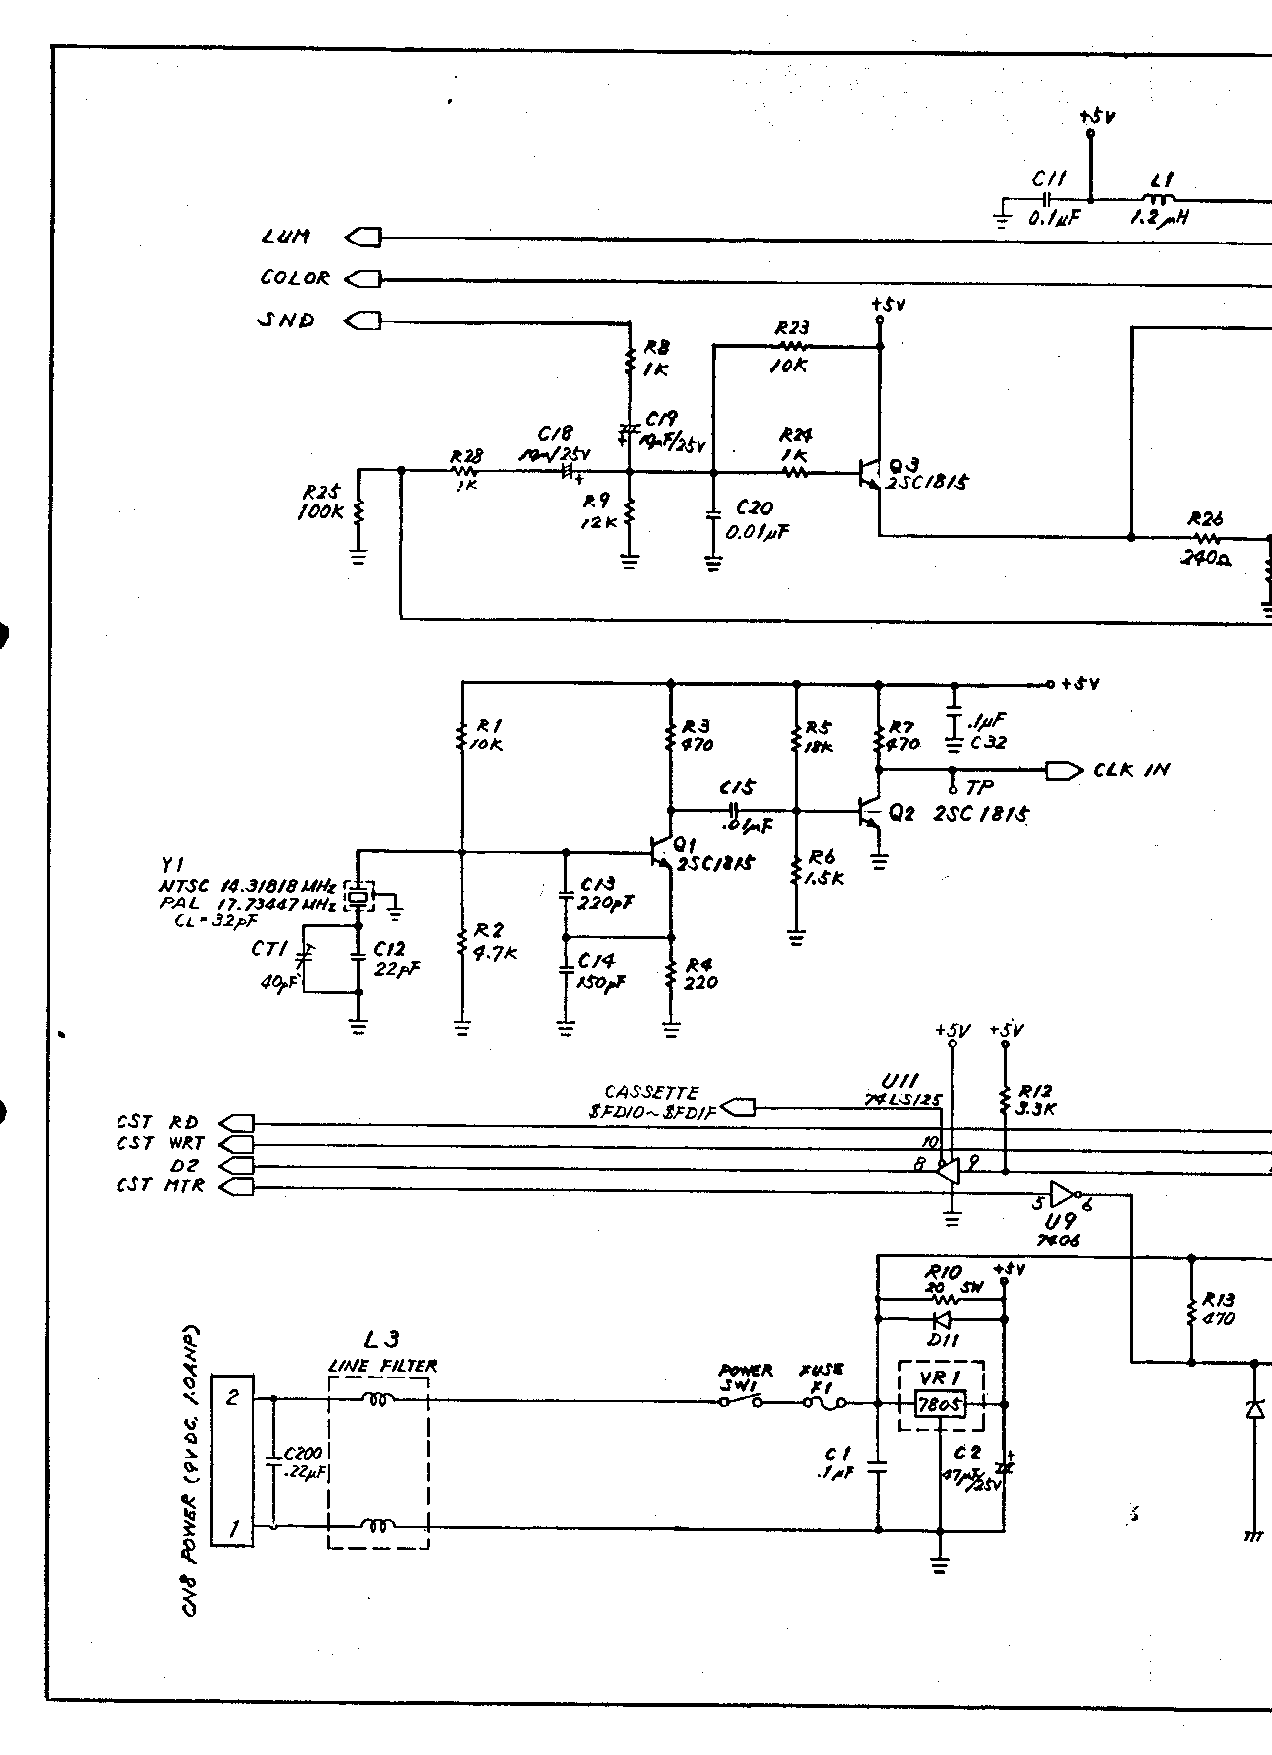 +5V
C11
0.1µF
L1
1.2µH
LUM
COLOR
SND
R8
1K
R23
10K
+5V
C19
10µF/25V
C18
10µ/25V
R28
1K
R24
1K
Q3
2SC1815
R25
100K
R9
12K
C20
0.01µF
R26
240Ω
+5V
R1
10K
R3
470
R5
18K
R7
470
.1µF
C32
CLK IN
TP
C15
.01µF
Q2 2SC1815
Q1
2SC1815
R6
1.5K
Y1
NTSC 14.31818 MHz
PAL 17.73447 MHz
CL=32pF
C13
220pF
CT1
40pF
C12
22pF
R2
4.7K
C14
150pF
R4
220
+5V
+5V
CASSETTE
$FD10~$FD1F
U11
74LS125
R12
3.3K
CST RD
CST WRT
D2
CST MTR
10
8
9
5
6
U9
7406
R10
20 5W
+5V
D11
R13
470
L3
LINE FILTER
POWER
SW1
FUSE
F1
VR1
7805
CN8 POWER (9VDC, 1.0AMP)
2
1
C200
.22µF
C1
.1µF
C2
47µF/25V
+